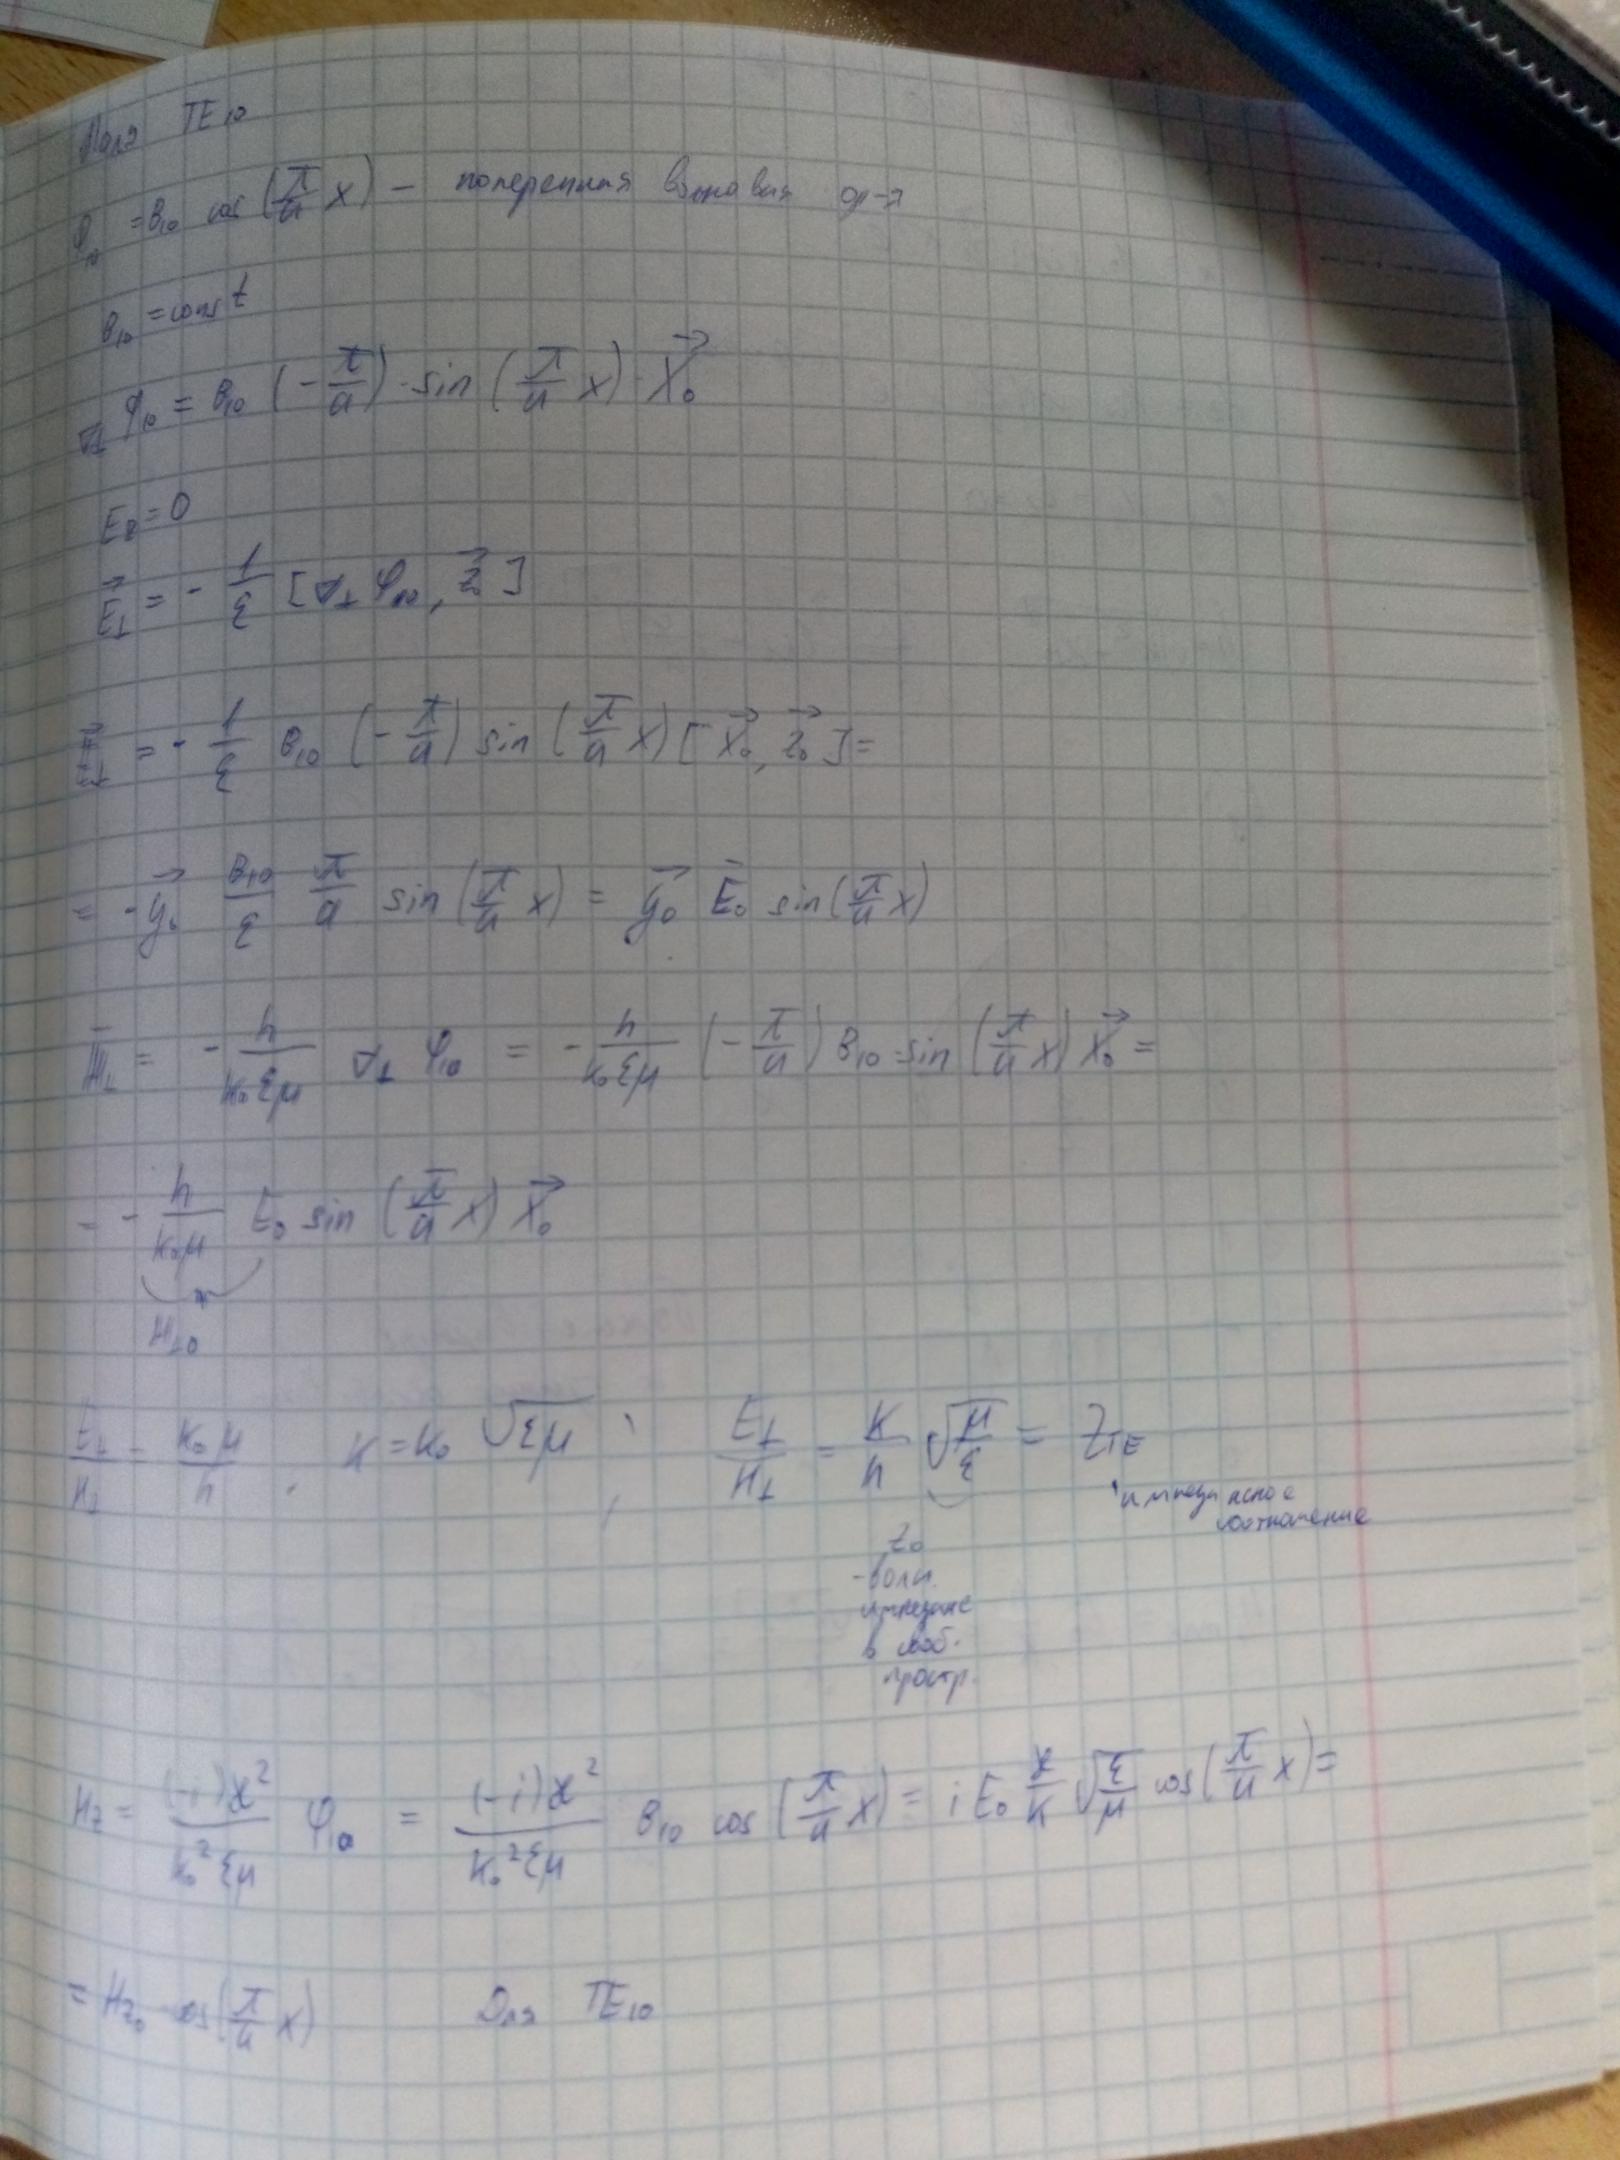 Поля TE₁₀
φ₁₀ = B₁₀ cos(π/a x) – поперечная волновая ф-я
B₁₀ = const
∇⊥ φ₁₀ = B₁₀ (-π/a) · sin(π/a x) · x⃗₀
E_z = 0
E⃗⊥ = - 1/ε [∇⊥ φ₁₀, z⃗₀]
= - 1/ε B₁₀ (-π/a) sin(π/a x) [x⃗₀, z⃗₀] =
= - y⃗₀ B₁₀/ε π/a sin(π/a x) = y⃗₀ E₀ sin(π/a x)
H⊥ = - h/(k₀εμ) ∇⊥ φ₁₀ = - h/(k₀εμ) (-π/a) B₁₀ sin(π/a x) x⃗₀ =
= - h/(k₀μ) E₀ sin(π/a x) x⃗₀
H⊥₀
E⊥/H⊥ = k₀μ/h , k = k₀ √εμ , E⊥/H⊥ = k/h √(μ/ε) = Z_TE
импедансное
соотношение
z₀
- волн.
импеданс
в своб.
простр.
H_z = (-i)ϰ²/(k₀²εμ) φ₁₀ = (-i)ϰ²/(k₀²εμ) B₁₀ cos(π/a x) = i E₀ ϰ/k √(ε/μ) cos(π/a x) =
= H_z₀ cos(π/a x) Для TE₁₀